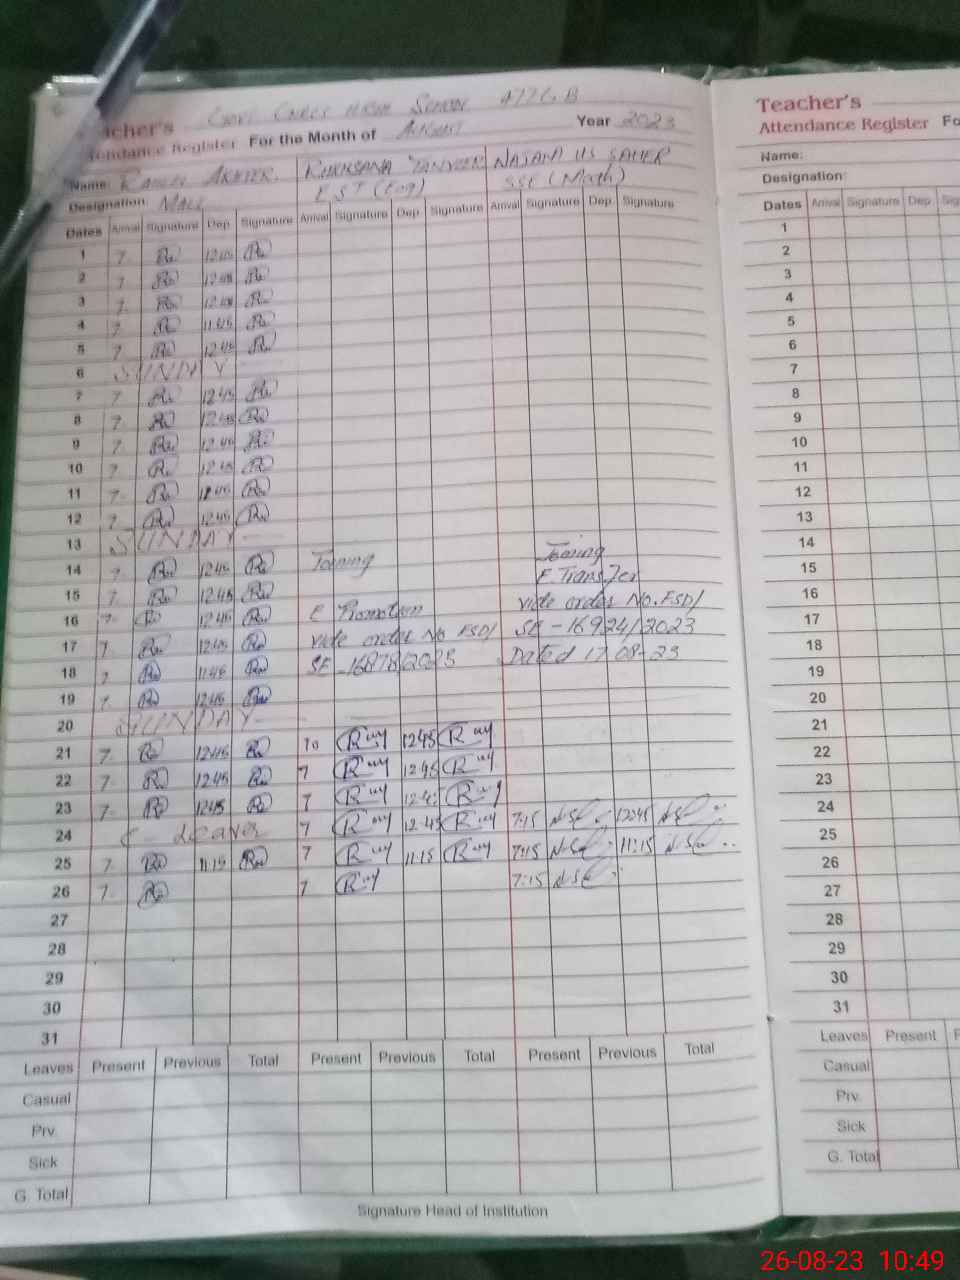 Teacher's Govt Girls High School 477 G.B
Attendance Register For the Month of August Year 2023
Name: Akhter. Rukhsana Tanveer Najam us Saher
Designation: Mali EST (Eng) SSE (Math)
Dates Arrival Signature Dep. Signature Arrival Signature Dep. Signature Arrival Signature Dep. Signature
1 7. 12:45
2 7. 12:45
3 7. 12:45
4 7. 11:45
5 7. 12:45
6 SUNDAY
7 7 12:45
8 7. 12:45
9 7. 12:45
10 7 12:45
11 7. 12:45
12 7. 12:45
13 SUNDAY
14 7 12:45 Joining Joining
15 7. 12:45 E. Transfer
16 7. 12:45 E Promotion vide order No. FSD/
17 7. 12:45 vide order No FSD/ SE-16924/2023
18 7 11:45 SE-16878/2023 Dated 17-08-23
19 7. 12:45
20 SUNDAY
21 7. 12:45 10 12:45
22 7. 12:45 7 12:45
23 7. 12:45 7 12:45
24 Leave 7 12:45 7:15 12:45
25 7. 11:15 7 11:15 7:15 11:15
26 7. 7 7:15
27
28
29
30
31
Leaves Present Previous Total Present Previous Total Present Previous Total
Casual
Prv.
Sick
G. Total
Signature Head of Institution
Teacher's
Attendance Register Fo
Name:
Designation:
Dates Arrival Signature Dep. Sig
1
2
3
4
5
6
7
8
9
10
11
12
13
14
15
16
17
18
19
20
21
22
23
24
25
26
27
28
29
30
31
Leaves Present P
Casual
Prv.
Sick
G. Total
26-08-23 10:49